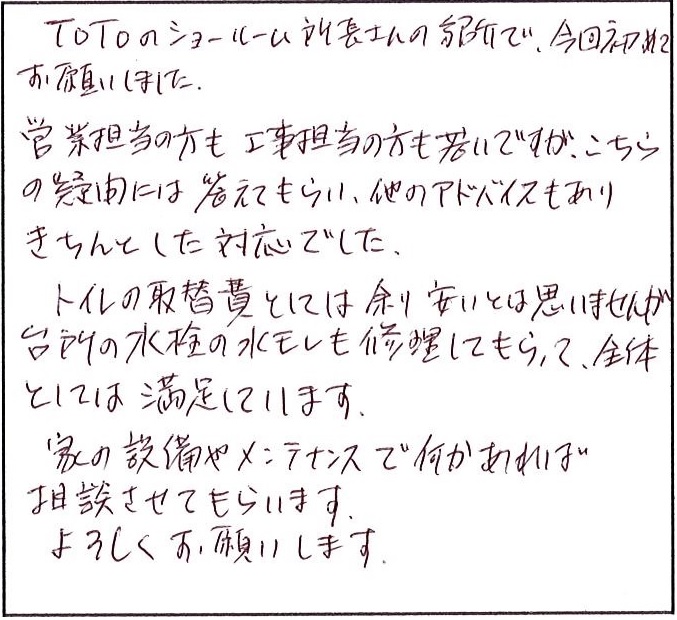 TOTOのショールーム所長さんの紹介で、今回初めて
お願いしました。
営業担当の方も工事担当の方も若いですが、こちら
の疑問には答えてもらい、他のアドバイスもあり
きちんとした対応でした、
トイレの取替費としては余り安いとは思いませんが
台所の水栓の水モレも修理してもらって、全体
としては満足しています。
家の設備やメンテナンスで何かあれば
相談させてもらいます。
よろしくお願いします。